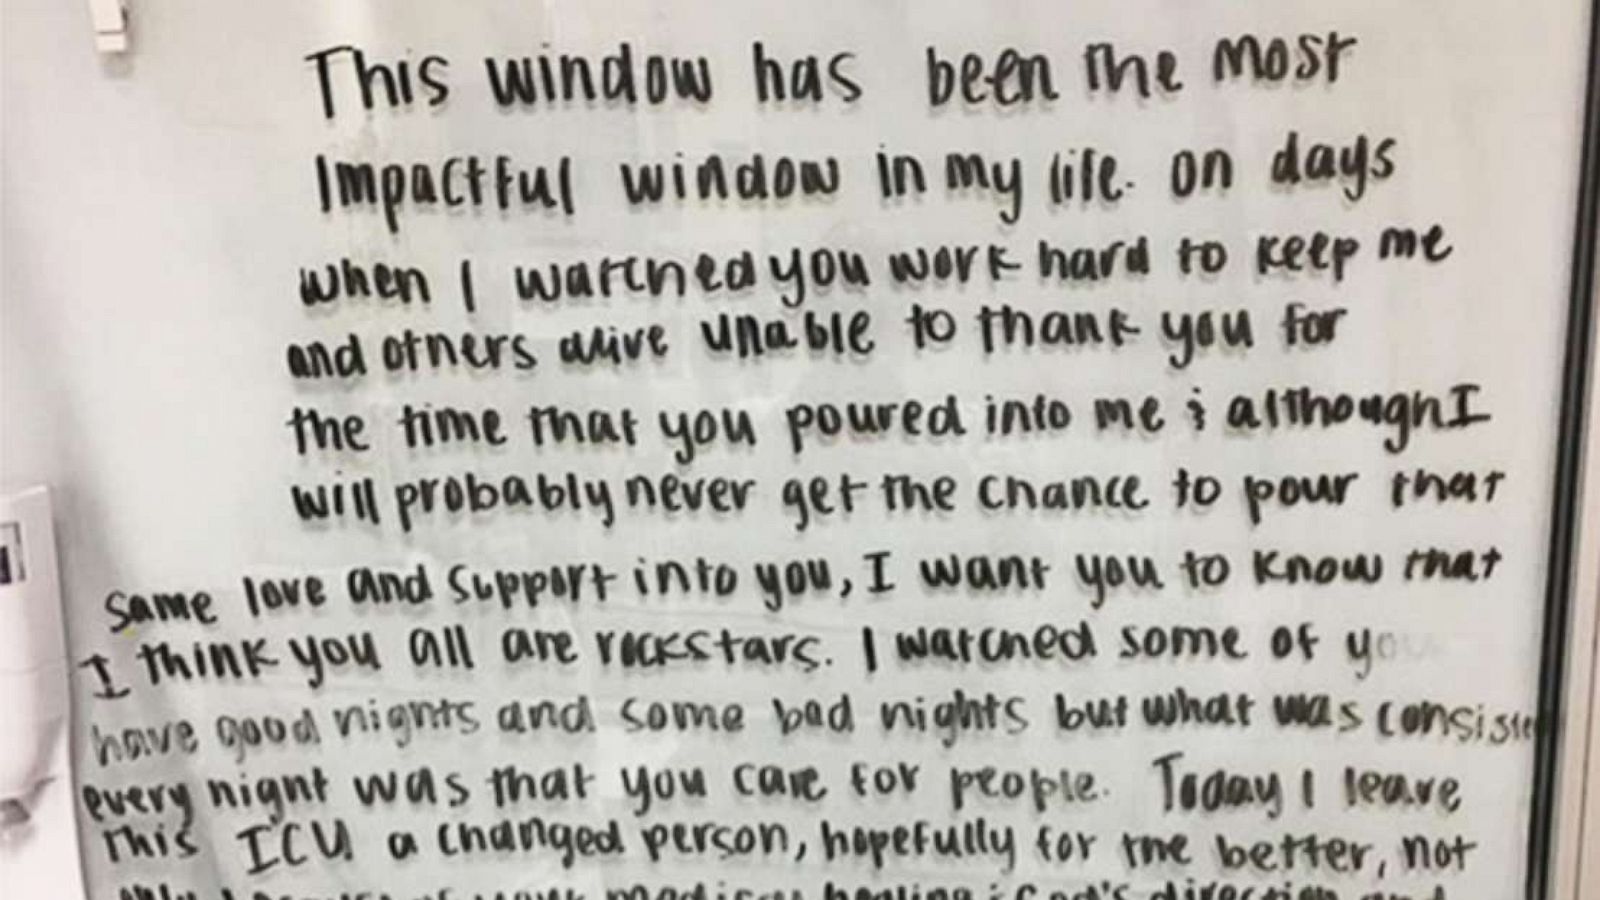 This window has been the most
Impactful window in my life. on days
when I watched you work hard to keep me
and others alive unable to thank you for
the time that you poured into me & although I
will probably never get the chance to pour that
same love and support into you, I want you to know that
I think you all are rockstars. I watched some of you
have good nights and some bad nights but what was consisten
every night was that you care for people. Today I leave
this ICU a changed person, hopefully for the better, not
only because of your medical healing & God's direction and